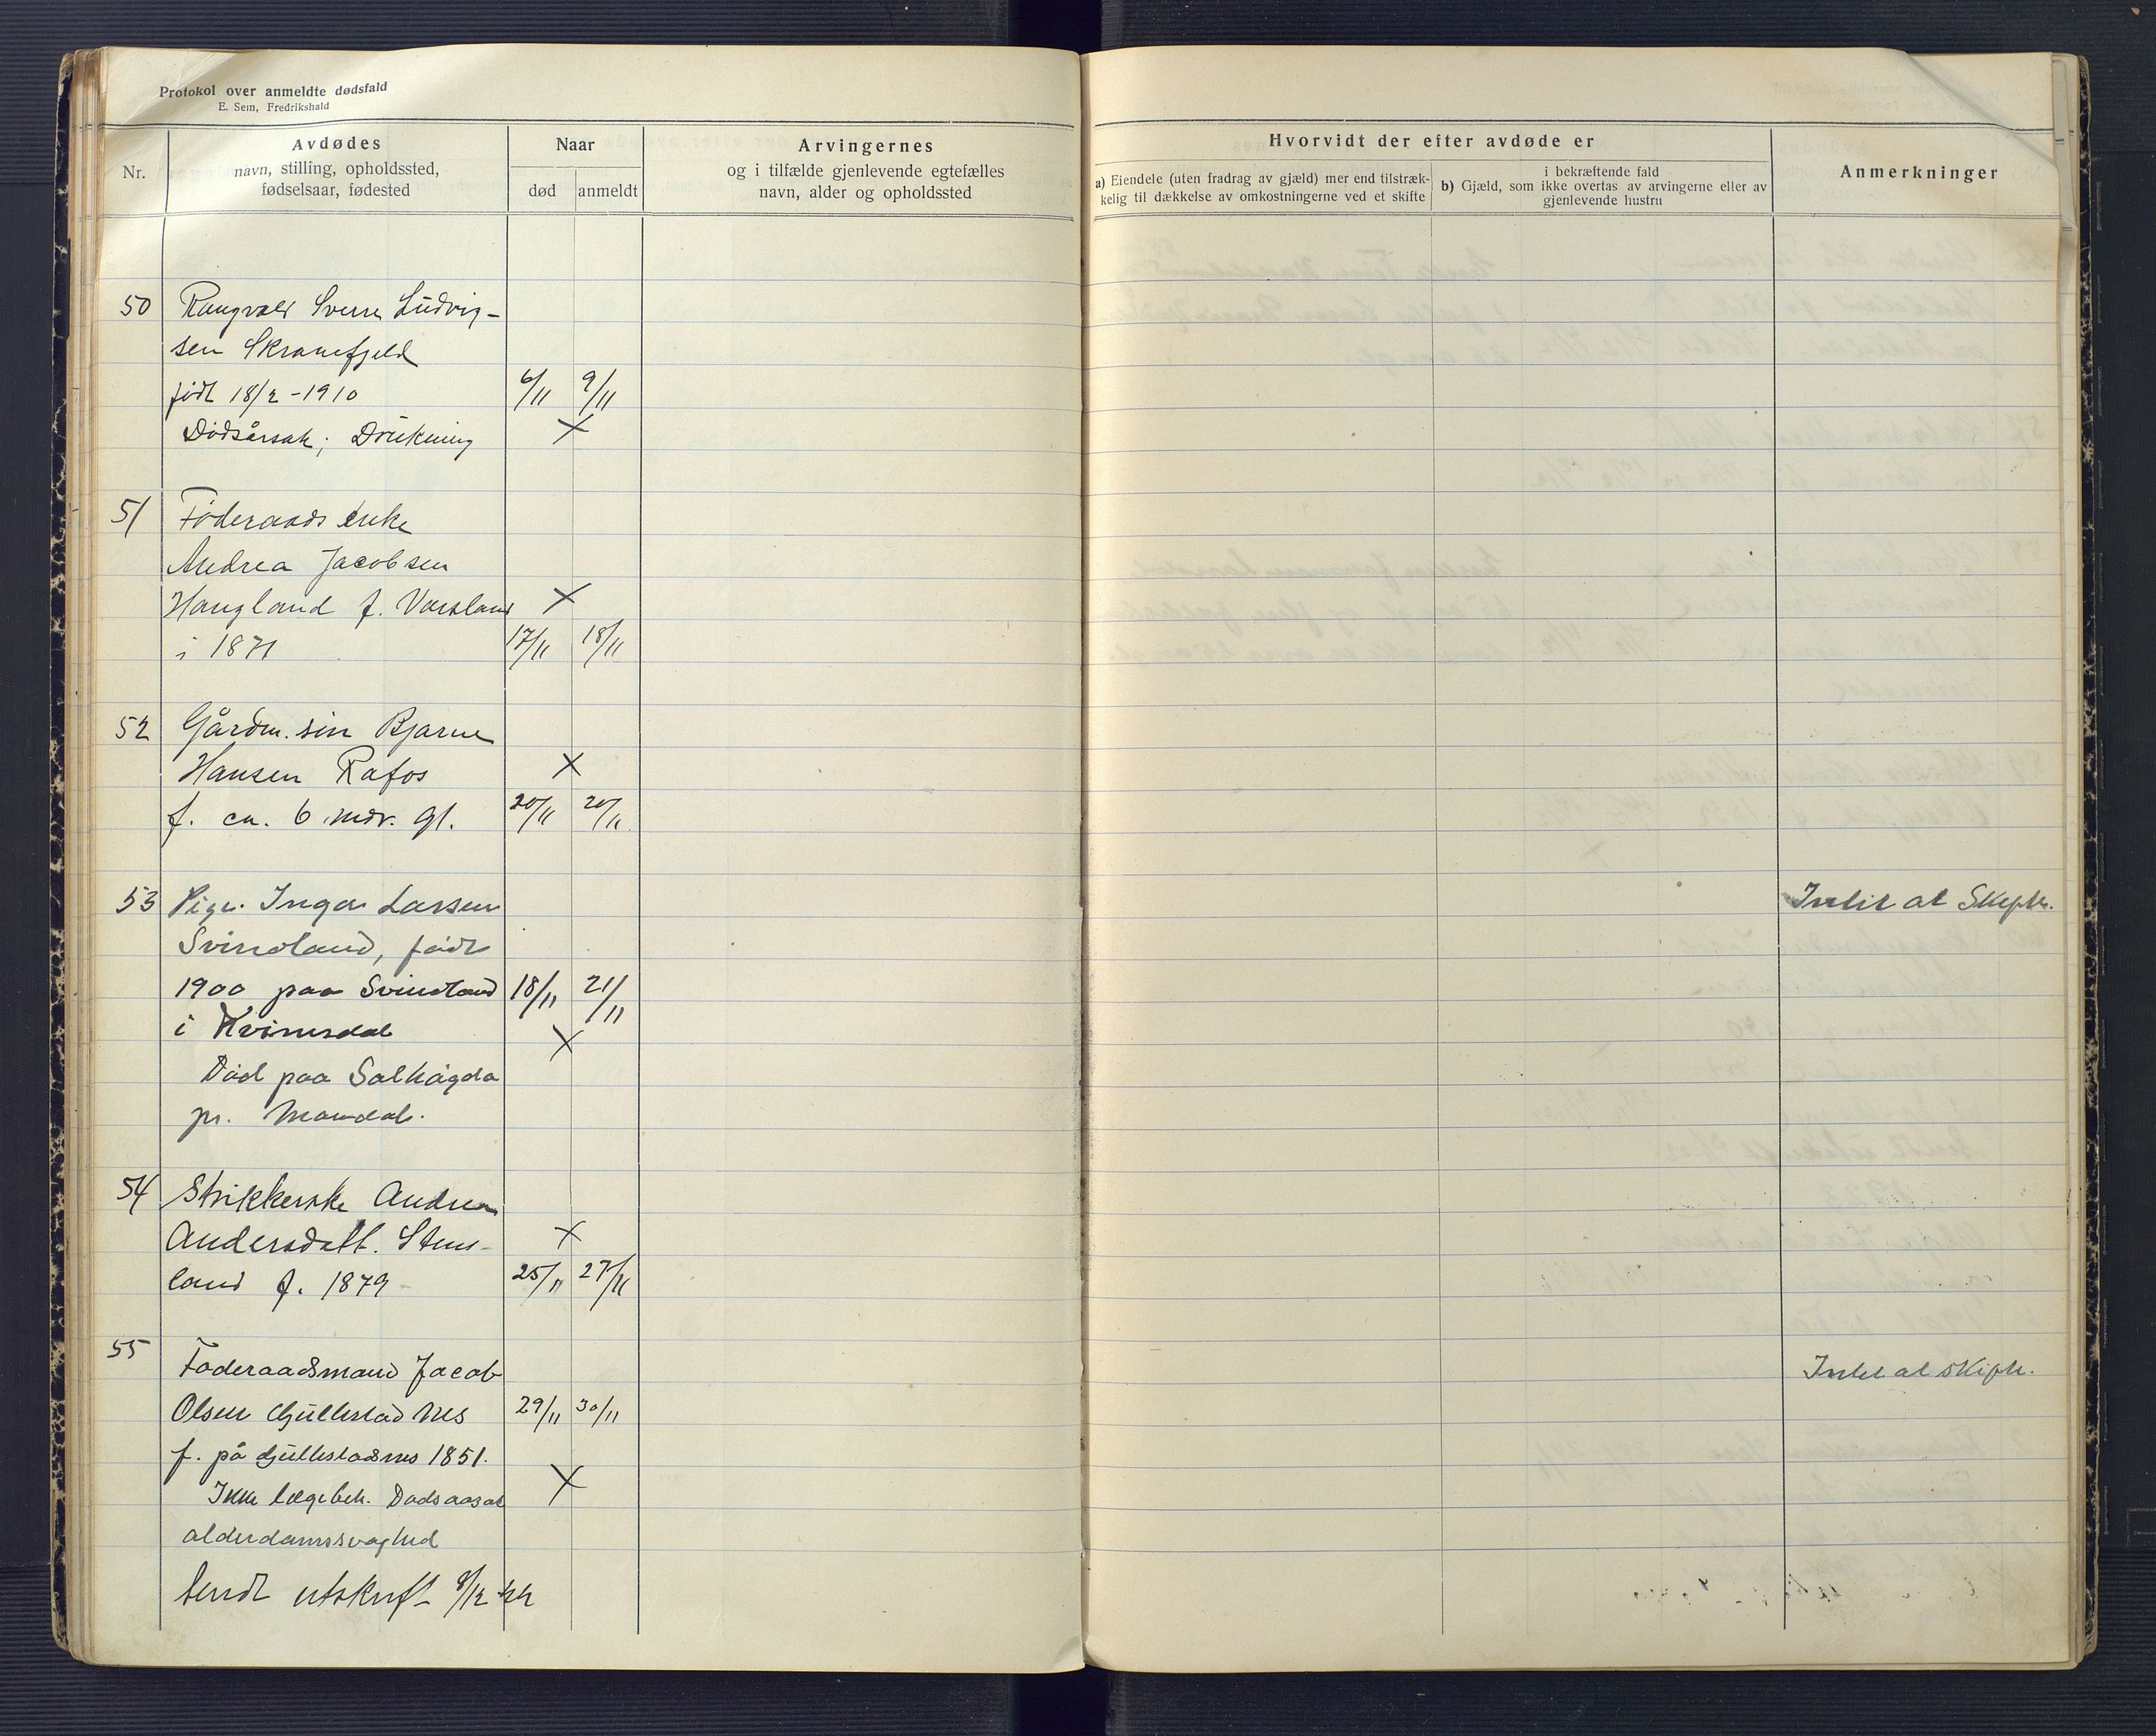 Protokol over anmeldte dødsfald
E. Sem, Fredrikshald
Nr.
Avdødes
navn, stilling, opholdssted,
fødselsaar, fødested
Naar
død
anmeldt
Arvingernes
og i tilfælde gjenlevende egtefælles
navn, alder og opholdssted
Hvorvidt der efter avdøde er
a) Eiendele (uten fradrag av gjæld) mer end tilstræk-
kelig til dækkelse av omkostningerne ved et skifte
i bekræftende fald
b) Gjæld, som ikke overtas av arvingerne eller av
gjenlevende hustru
Anmerkninger
50 Rangvald Sverre Ludvig-
sen Skranefjeld
født 18/2 - 1910 6/11 9/11
Dødsårsak; Drukning X
51 Føderaads enke
Andrea Jacobsen
Haugland f. Versland X
i 1871 17/11 18/11
52 Gårdm. søn Bjarne
Hansen Rafos X
f. ca. 6 mdr. gl. 20/11 20/11
53 Pige. Inga Larsen Intet at Skifte.
Svindland, født
1900 paa Svindland 18/11 21/11
i Kvinesdal X
Død paa Salhøgda
pr. Mandal.
54 Strikkerske Andrea
Andersdatt. Stens- X
land f. 1879 - 25/11 27/11
55 Føderaadsmand Jacob Intet at skifte.
Olsen Gullestad nes 29/11 30/11
f. på Gullestadnes 1851.
Ikke lægebeh. Dødsaasak X
alderdomssvaghed
Sendt utskrift 8/12